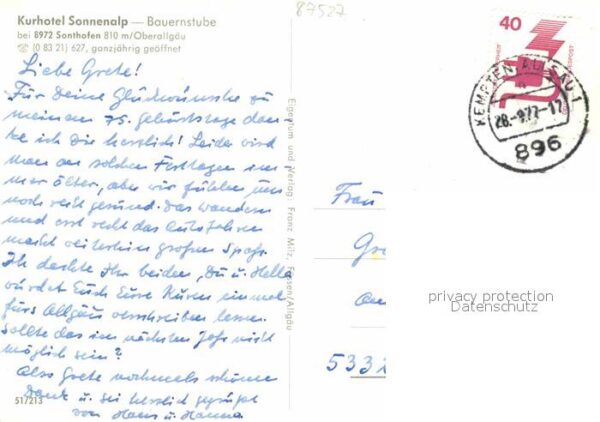 87527
Kurhotel Sonnenalp — Bauernstube
bei 8972 Sonthofen 810 m/Oberallgäu
☎ (0 83 21) 627, ganzjährig geöffnet
Liebe Grete!
Für Deine Glückwünsche zu
meinem 75. Geburtstage dan-
ke ich Dir herzlich! Leider wird
man an solchen Festtagen im-
mer älter, aber wir fühlen uns
noch recht gesund. Das Wandern
und erst recht das Autofahren
macht weiterhin großen Spaß.
Ich dachte Ihr beiden, Du u. Hella
würdet Euch Eure Kuren einmal
fürs Allgäu verschreiben lassen.
Sollte das im nächsten Jahr nicht
möglich sein?
Also Grete nochmals schönen
Dank u. sei herzlich gegrüßt
von Hans u. Hanna
517/213
Eigentum und Verlag Franz Milz, Füssen/Allgäu
40
KEMPTEN, ALLGÄU 1
28.-9.77.-17
896
Frau
Gre
533
privacy protection
Datenschutz